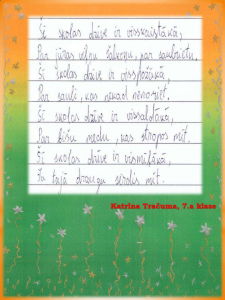 Šī skolas dzīve ir visskaistākā,
Par jūras viļņu šalkoņu, par saulrietu.
Šī skolas dzīve ir visspožākā,
Par sauli, kas nekad nenoriet.
Šī skolas dzīve ir vissaldākā,
Par bišu medu, kas stropos mīt.
Šī skolas dzīve ir vismīļākā,
Jo tajā draugu sirdis mīt.
Katrīna Tračuma, 7.a klase